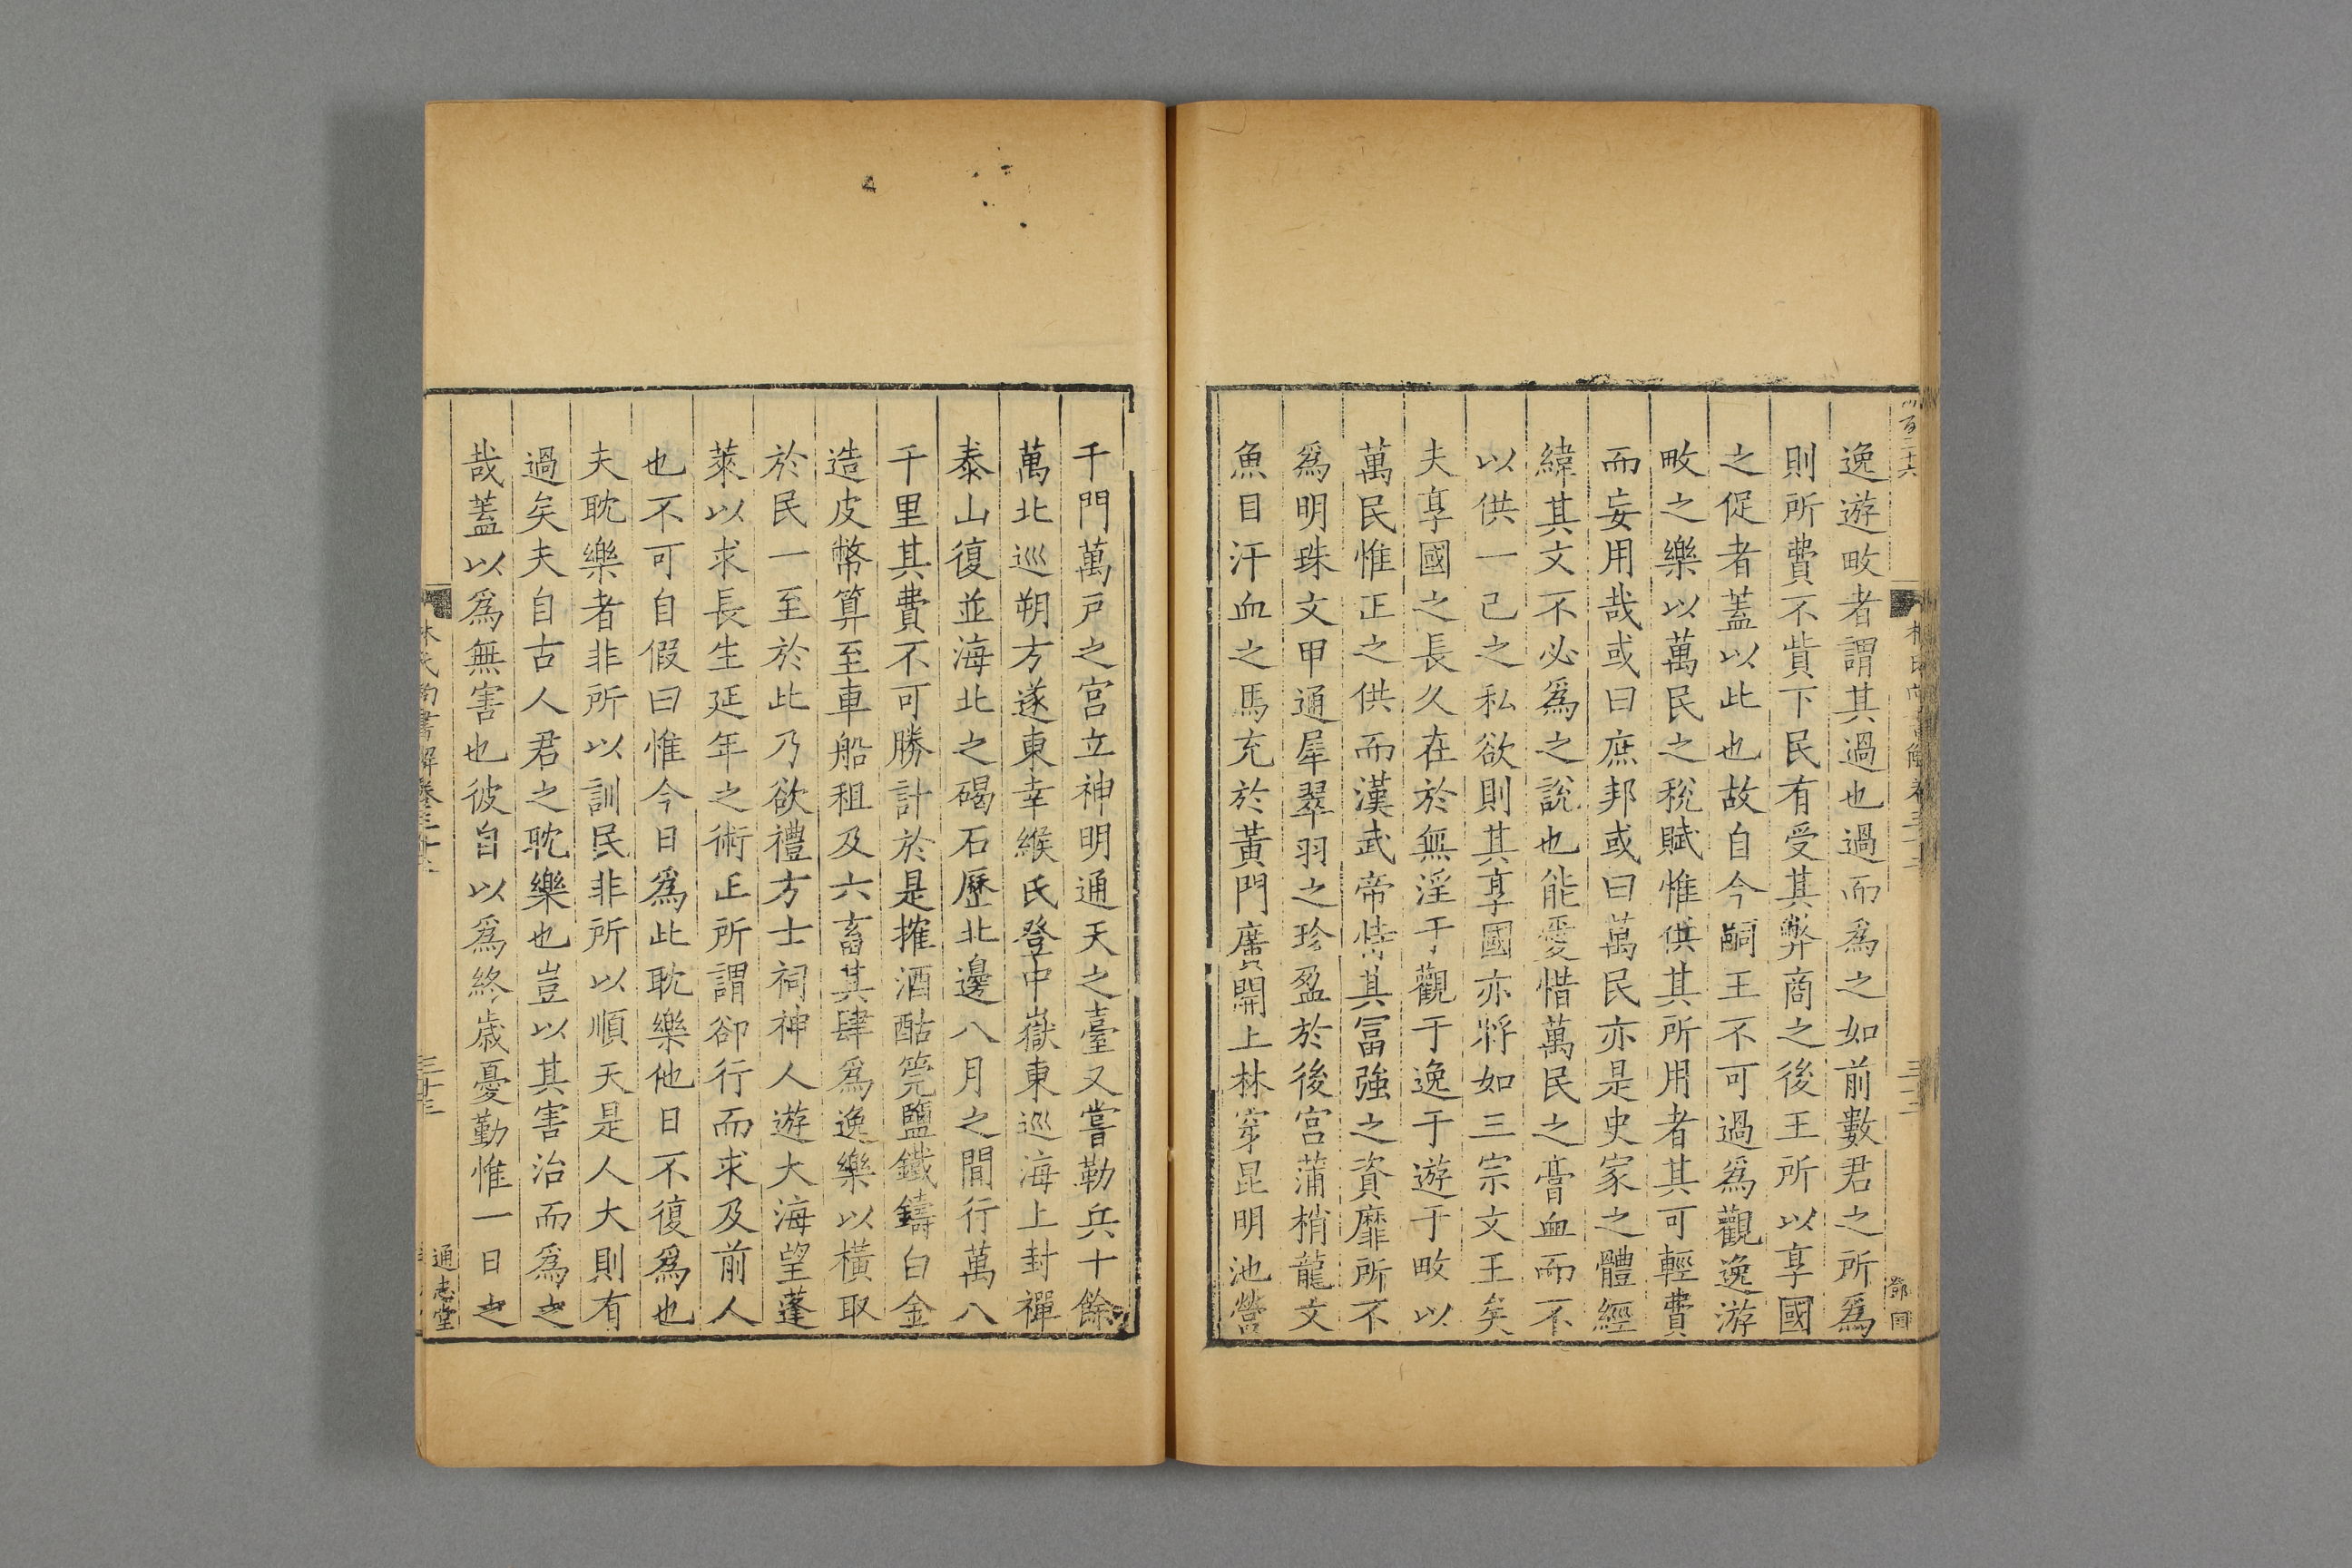 逸遊畋者謂其過也過而爲之如前數君之所爲
則所費不貲下民有受其弊商之後王所以享國
之促者蓋以此也故自今嗣王不可過爲觀逸游
畋之樂以萬民之稅賦惟供其所用者其可輕費
而妄用哉或曰庶邦或曰萬民亦是史家之體經
緯其文不必爲之說也能愛惜萬民之膏血而不
以供一己之私欲則其享國亦將如三宗文王矣
夫享國之長久在於無淫于觀于逸于遊于畋以
萬民惟正之供而漢武帝恃其冨強之資靡所不
爲明珠文甲通犀翠羽之珍盈於後宮蒲梢龍文
魚目汗血之馬充於黃門廣開上林穿昆明池營
千門萬戸之宮立神明通天之臺又嘗勒兵十餘
萬北巡朔方遂東幸緱氏登中嶽東巡海上封禪
泰山復並海北之碣石歷北邊八月之閒行萬八
千里其費不可勝計於是搉酒酤筦鹽鐵鑄白金
造皮幣算至車船租及六畜其肆爲逸樂以橫取
於民一至於此乃欲禮方士祠神人遊大海望蓬
萊以求長生延年之術正所謂卻行而求及前人
也不可自假曰惟今日爲此耽樂他日不復爲也
夫耽樂者非所以訓民非所以順天是人大則有
過矣夫自古人君之耽樂也豈以其害治而爲之
哉蓋以爲無害也彼自以爲終歲憂勤惟一日之
林氏尚書解卷三十二
三十三
通志堂